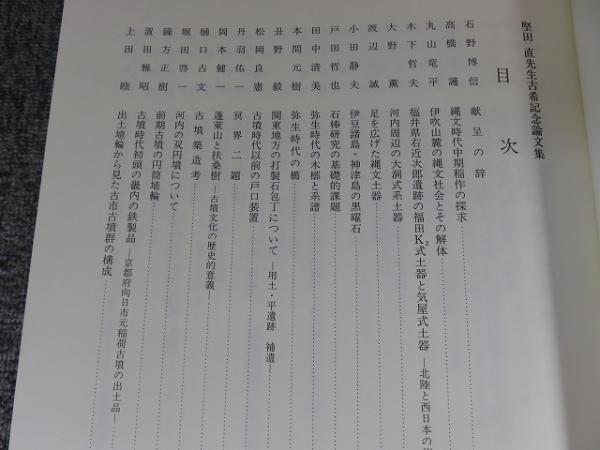 堅田 直先生古希記念論文集
目次
石野博信 献呈の辞
高橋 護 縄文時代中期稲作の探求
丸山竜平 伊吹山麓の縄文社会とその解体
木下哲夫 福井県右近次郎遺跡の福田K2式土器と気屋式土器 ―北陸と西日本の
大野 薫 河内周辺の大洞式系土器
渡辺 誠 足を広げた縄文土器
小田静夫 伊豆諸島・神津島の黒曜石
戸田哲也 石棒研究の基礎的課題
田中清美 弥生時代の木槨と系譜
本間元樹 弥生時代の櫛
丑野 毅 関東地方の打製石包丁について ―用土・平遺跡 補遺―
松岡良憲 古墳時代以前の戸口装置
丹羽佑一 冥界二題
岡本健一 蓬莱山と扶桑樹 ―古墳文化の歴史的意義―
樋口吉文 古墳築造考
堀田啓一 河内の双円墳について
鐘方正樹 前期古墳の円筒埴輪
置田雅昭 古墳時代初頭の畿内の鉄製品 ―京都府向日市元稲荷古墳の出土品―
上田 睦 出土埴輪から見た古市古墳群の構成